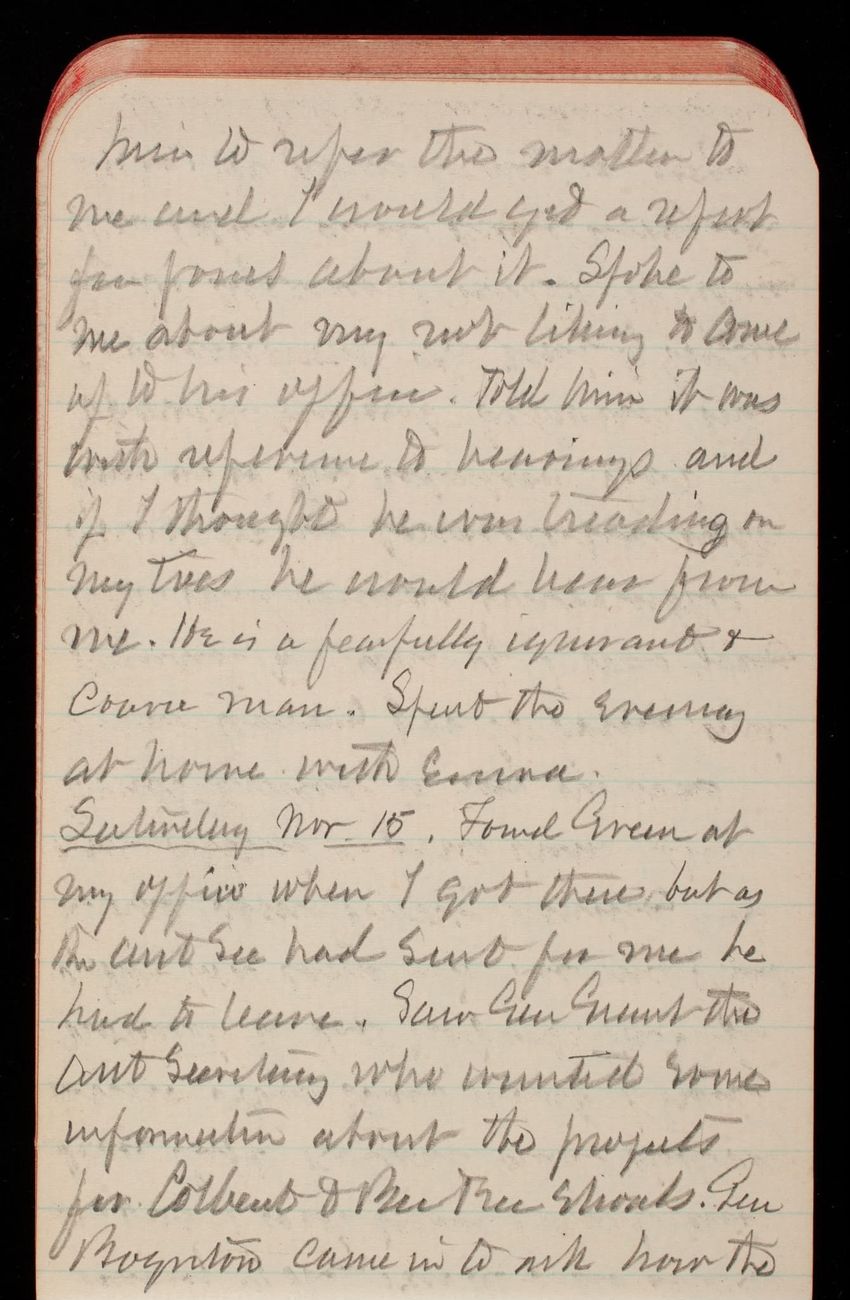 him to refer the matter to
me and I would get a report
for        about it. Spoke to
me about my not liking to come
up to his office. Told him it was
with reference to hearings and
if I thought he was treading on
my toes he would hear from
me. He is a fearfully ignorant &
coarse man. Spent the evening
at home with Emma.
Saturday Nov. 15. Found Green at
my office when I got there but as
the asst Sec had sent for me he
had to leave. Saw Gen Grant the
asst Secretary who wanted some
information about the projects
for Colbert & Bee Tree Shoals. Gen
Boynton came in to ask how the